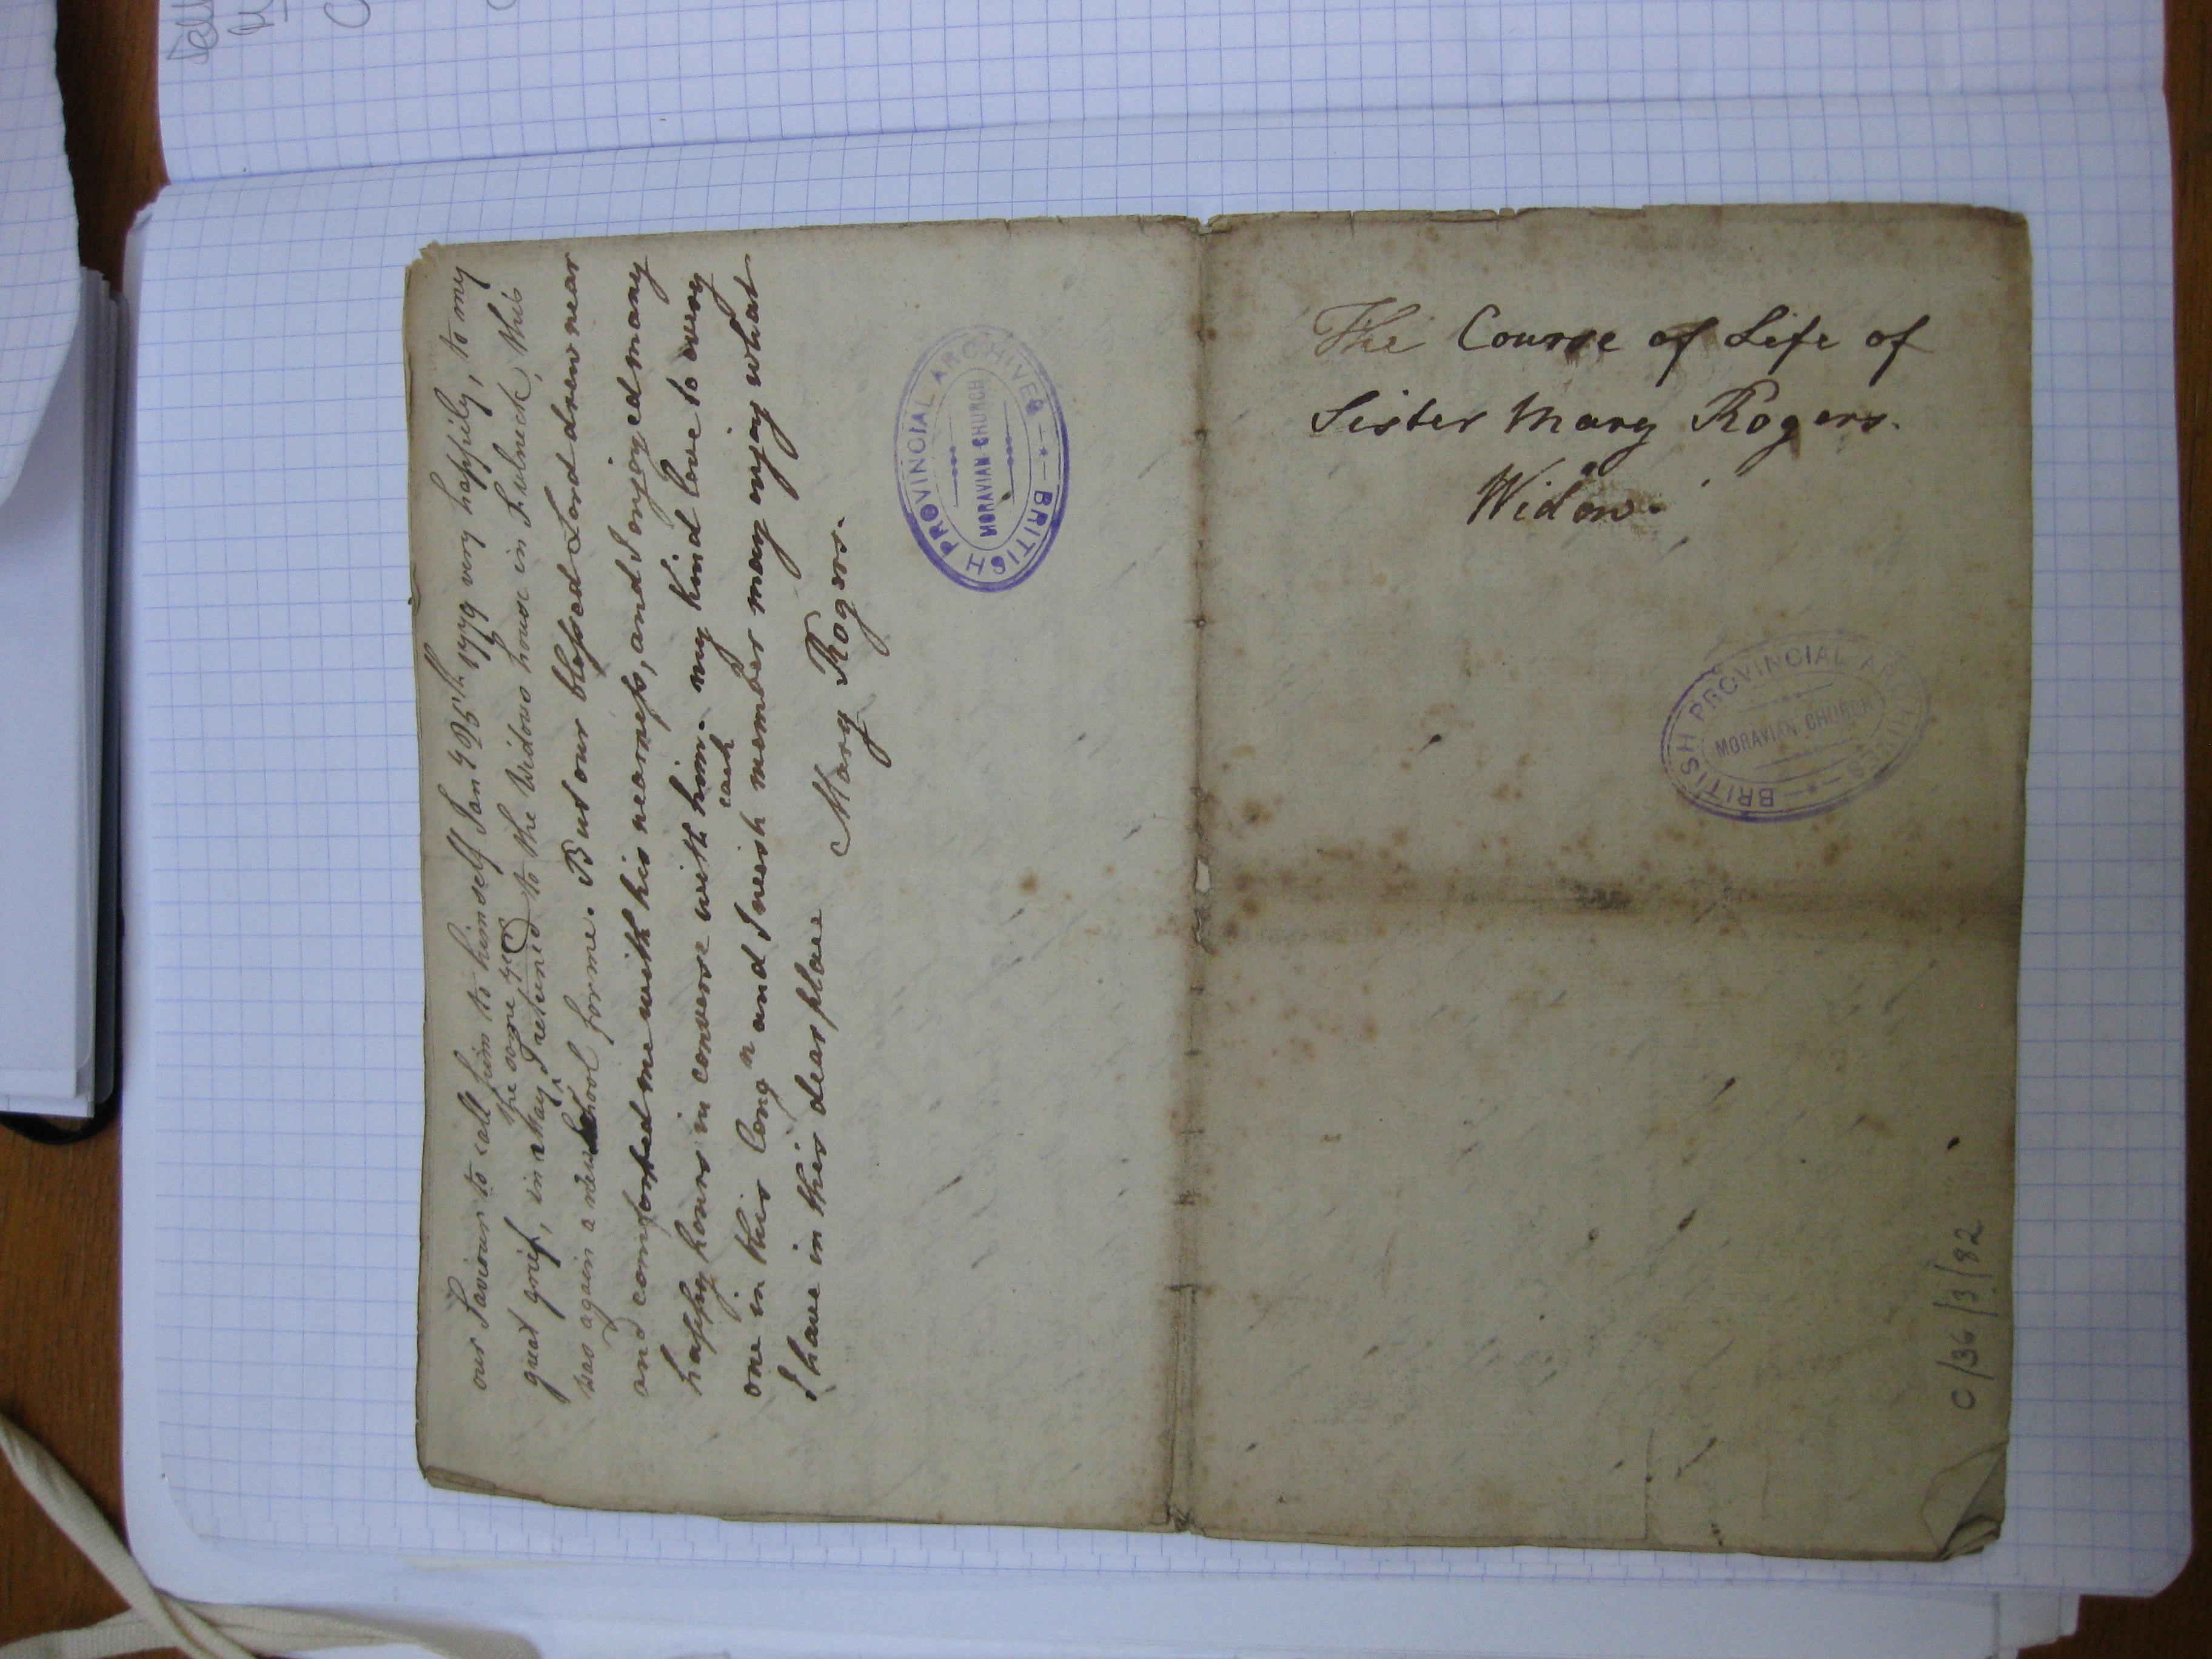 our Saviour to call him to himself Jan y 25th 1779 very happily, to my
the same year
great grief, in May I returned to the Widows house in Fulneck, this
was again a new School for me. But our blessed Lord drew near
and comforted me with his nearness, and I enjoyed many
happy hours in converse with him. my Kind love to every
each
one in this Congn and I wish member may enjoy what
I have in this dear place
Mary Rogers.
BRITISH PROVINCIAL ARCHIVES
MORAVIAN CHURCH
The Course of Life of
Sister Mary Rogers.
Widow.
BRITISH PROVINCIAL ARCHIVES
MORAVIAN CHURCH
C/36/3/82